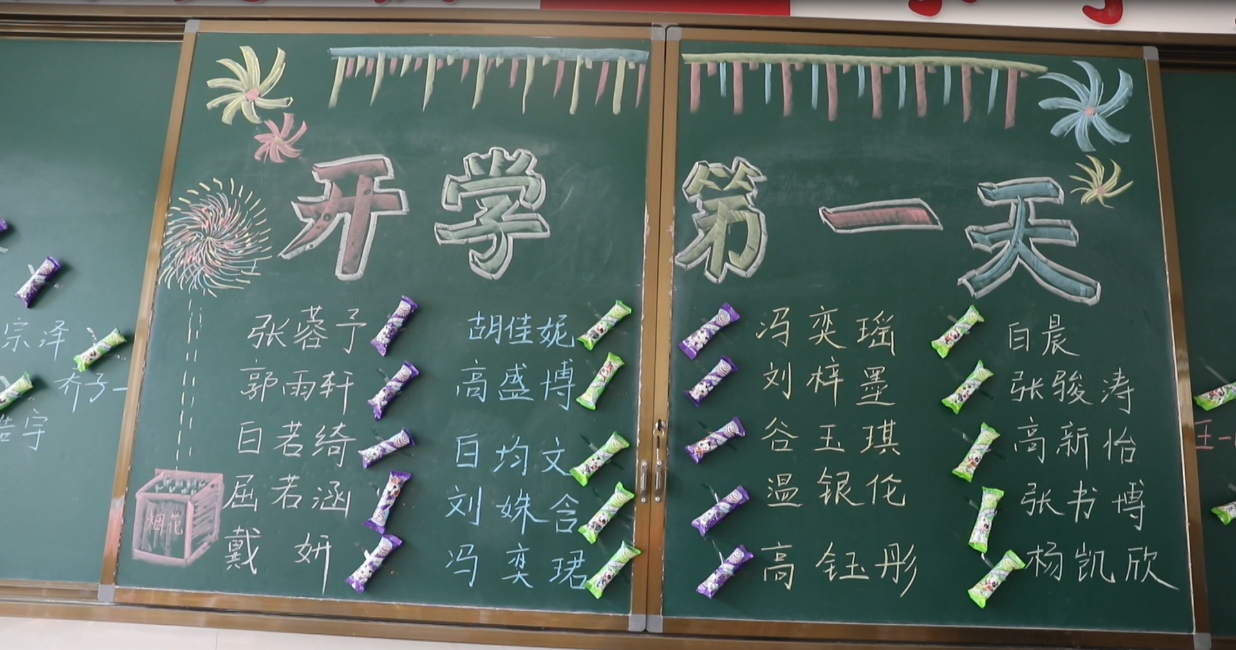 开学第一天
张蓉予 胡佳妮 冯奕瑶 白晨
宗泽
郭雨轩 高盛博 刘梓墨 张骏涛
乔子一
白若绮 白均文 谷玉琪 高新怡
浩宇
屈若涵 刘姝含 温银伦 张书博
烟花
戴妍 冯奕珺 高钰彤 杨凯欣